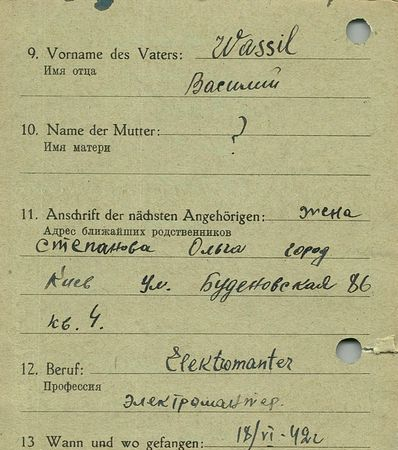 9. Vorname des Vaters: Wassil
Имя отца
Василий
10. Name der Mutter: ?
Имя матери
11. Anschrift der nächsten Angehörigen: жена
Адрес ближайших родственников
Степанова Ольга город
Киев ул. Буденовская 86
кв. 4.
12. Beruf: Elektromanter
Профессия
электромантер.
13 Wann und wo gefangen: 18/VI-42г